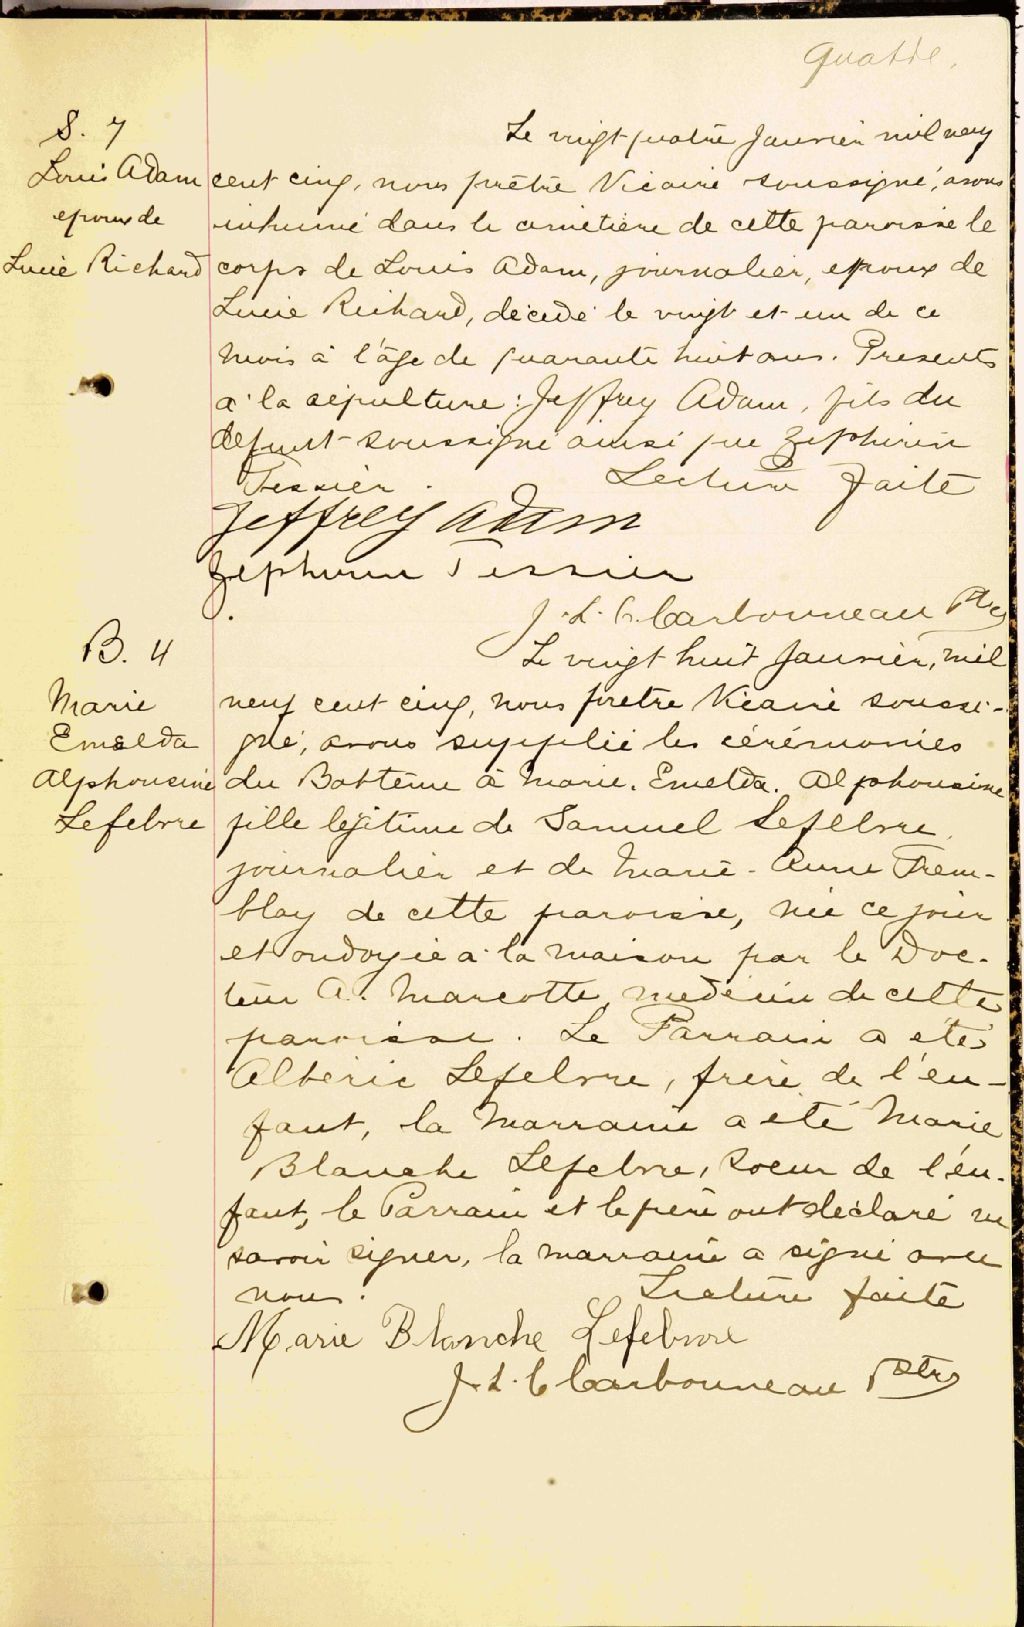 quatre.
S. 7
Louis Adam
epoux de
Lucie Richard
Le vingt quatre Janvier mil neuf
cent cinq, nous prêtre Vicaire soussigné, avons
inhumé dans le cimetière de cette paroisse le
corps de Louis Adam, journalier, epoux de
Lucie Richard, décédé le vingt et un de ce
mois à l'âge de quarante huit ans. Presents
à la sépulture: Jeffrey Adam, fils du
defunt soussigné ainsi que Zephirin
Tessier. Lecture faite
Jeffrey Adam
Zephirin Tessier
J. L. C. Carbonneau Ptre
B. 4
Marie
Emelda
Alphonsine
Lefebvre
Le vingt huit Janvier, mil
neuf cent cinq, nous prêtre Vicaire soussi-
gné, avons supplié les cérémonies
du Batême à Marie. Emelda. Alphonsine
fille légitime de Samuel Lefebvre,
journalier et de Marie-Anne Trem-
blay de cette paroisse, née ce jour
et ondoyée à la maison par le Doc-
teur A. Marcotte, medecin de cette
paroisse. Le Parrain a été
Albéric Lefebvre, frère de l'en-
fant, la Marraine a été Marie
Blanche Lefebvre, soeur de l'en-
fant, le Parrain et le père ont déclaré ne
savoir signer, la marraine a signé avec
nous. Lecture faite
Marie Blanche Lefebvre
J. L. C Carbonneau Ptre